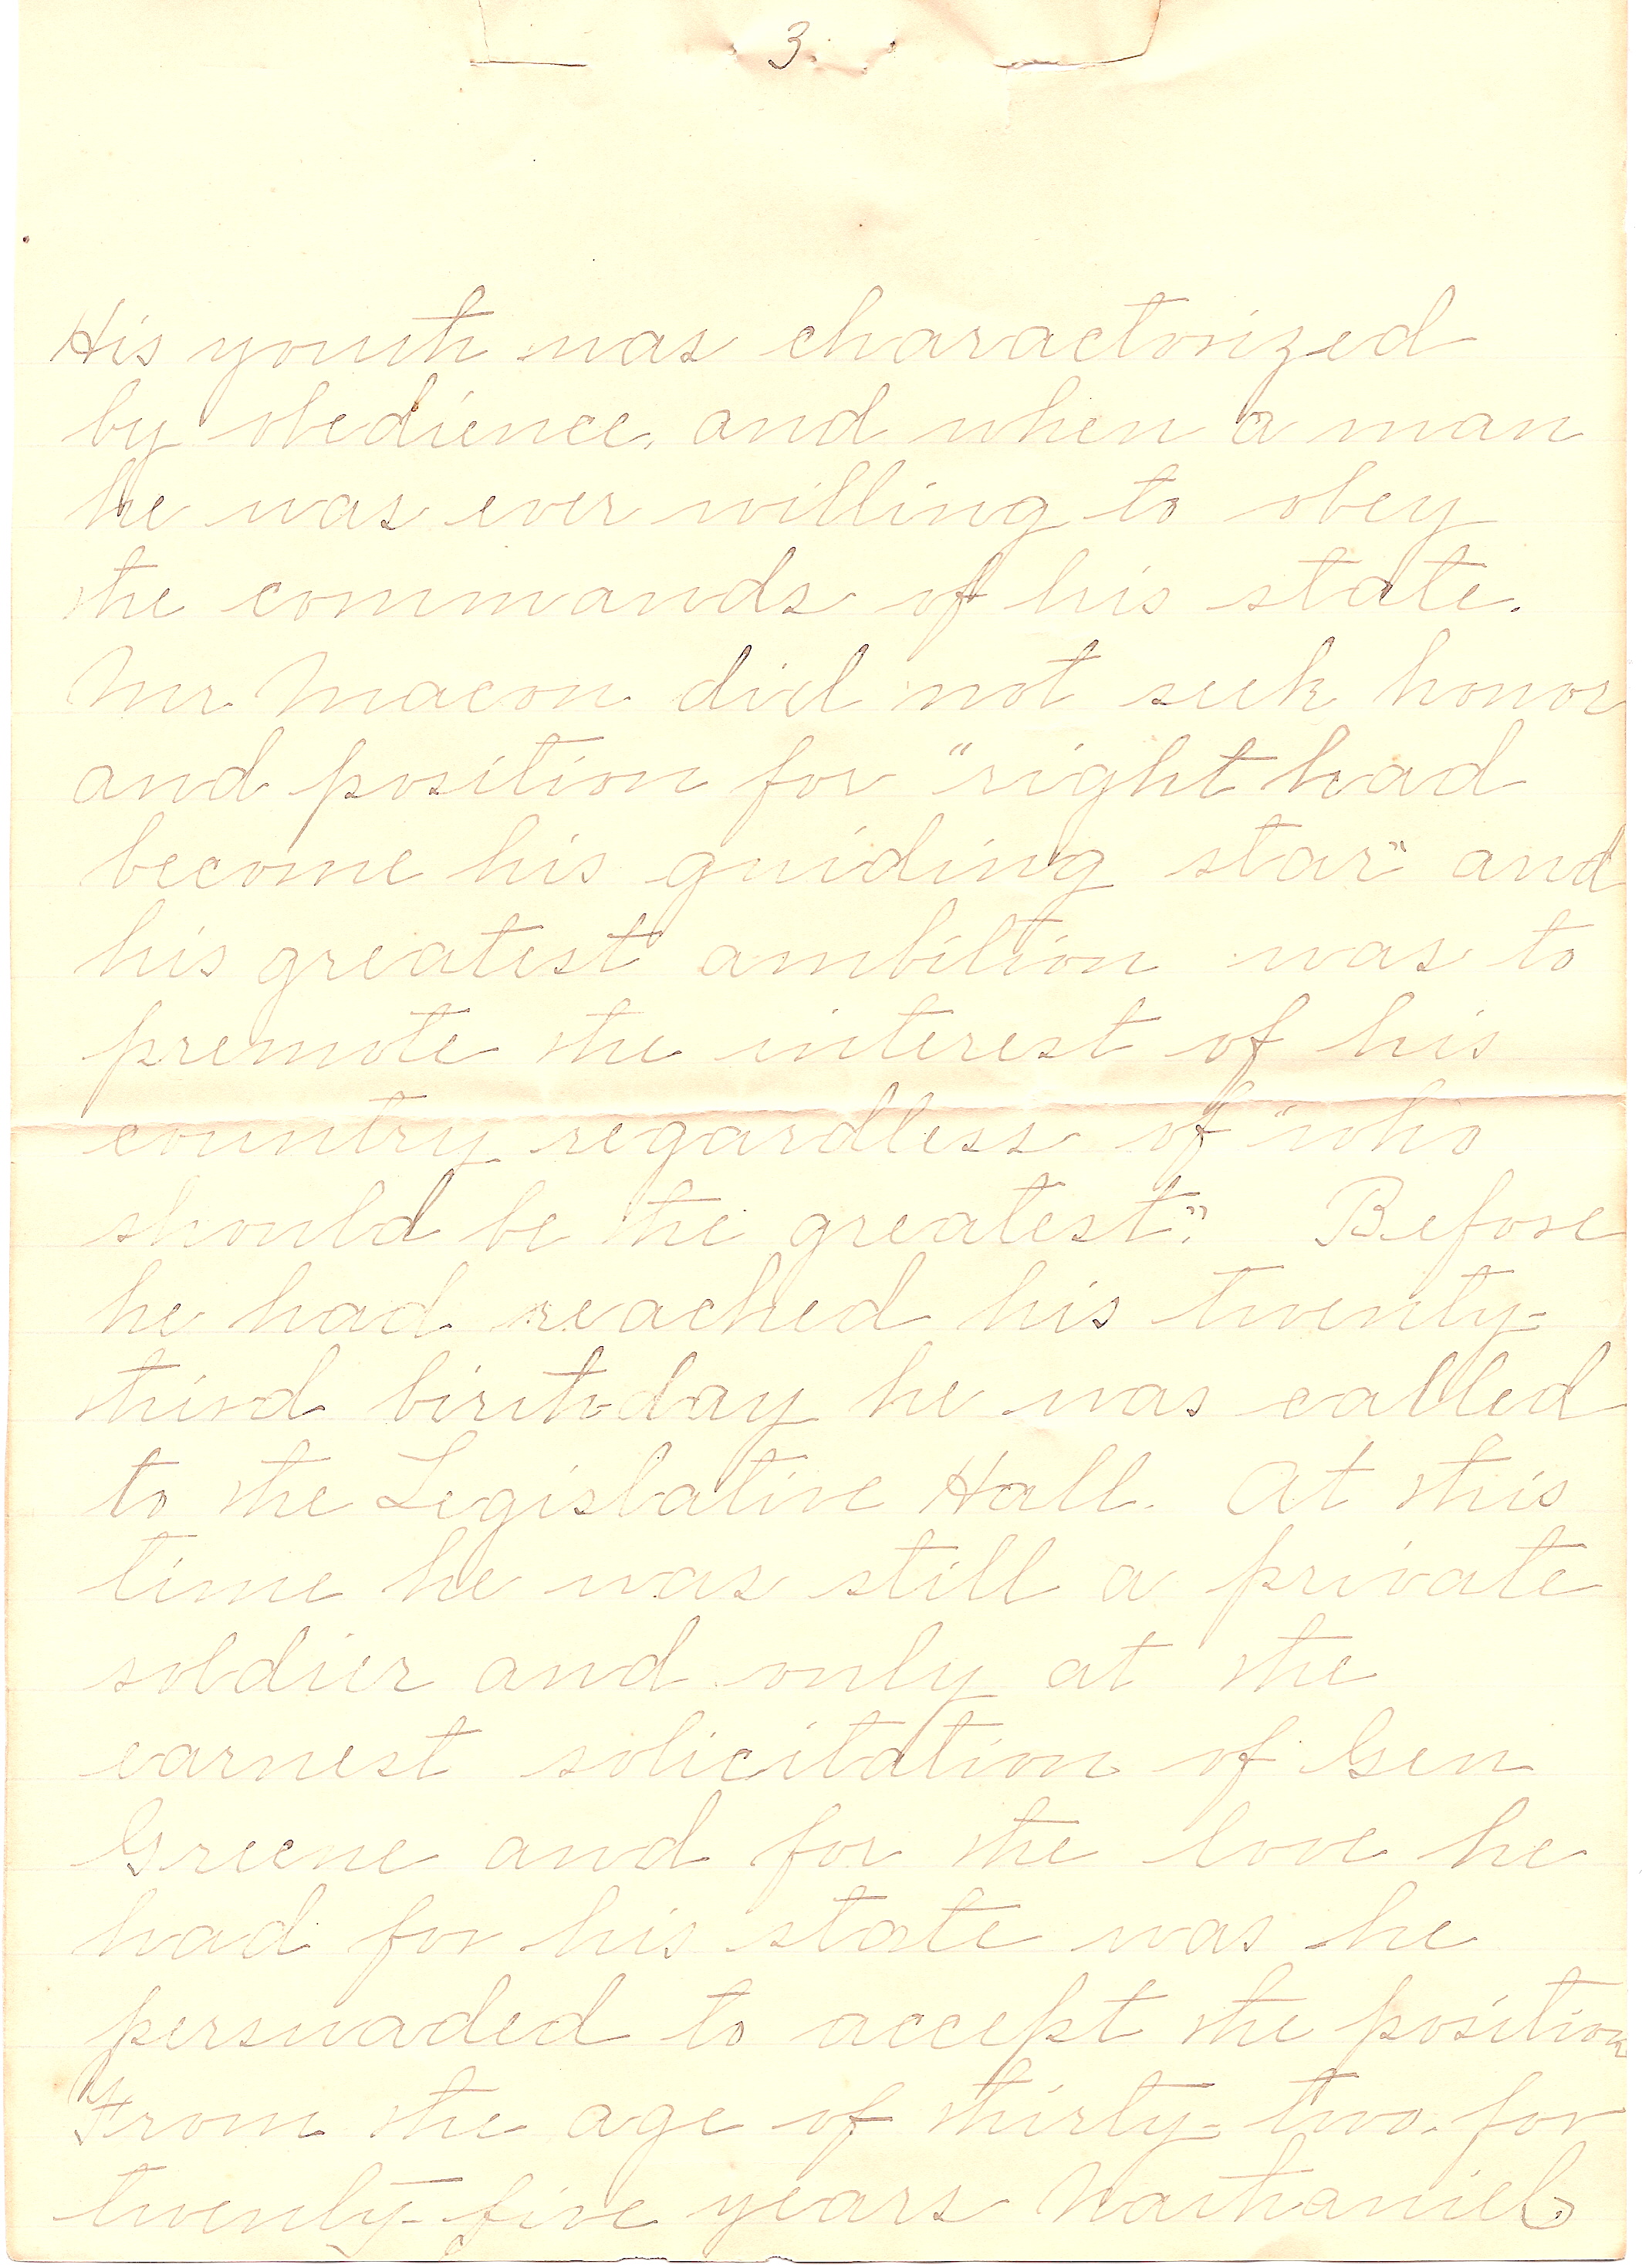 3.
His youth was charactorized
by obedience, and when a man
he was ever willing to obey
the commands of his state.
Mr. Macon did not seek honor
and position for "right had
become his guiding star" and
his greatest ambition was to
premote the interest of his
country regardless of "who
should be the greatest." Before
he had reached his twenty-
third birthday he was called
to the Legislative Hall. At this
time he was still a private
soldier and only at the
earnest solicitation of Gen
Greene and for the love he
had for his state was he
persuaded to accept the position
From the age of thirty-two for
twenty-five years Nathaniel